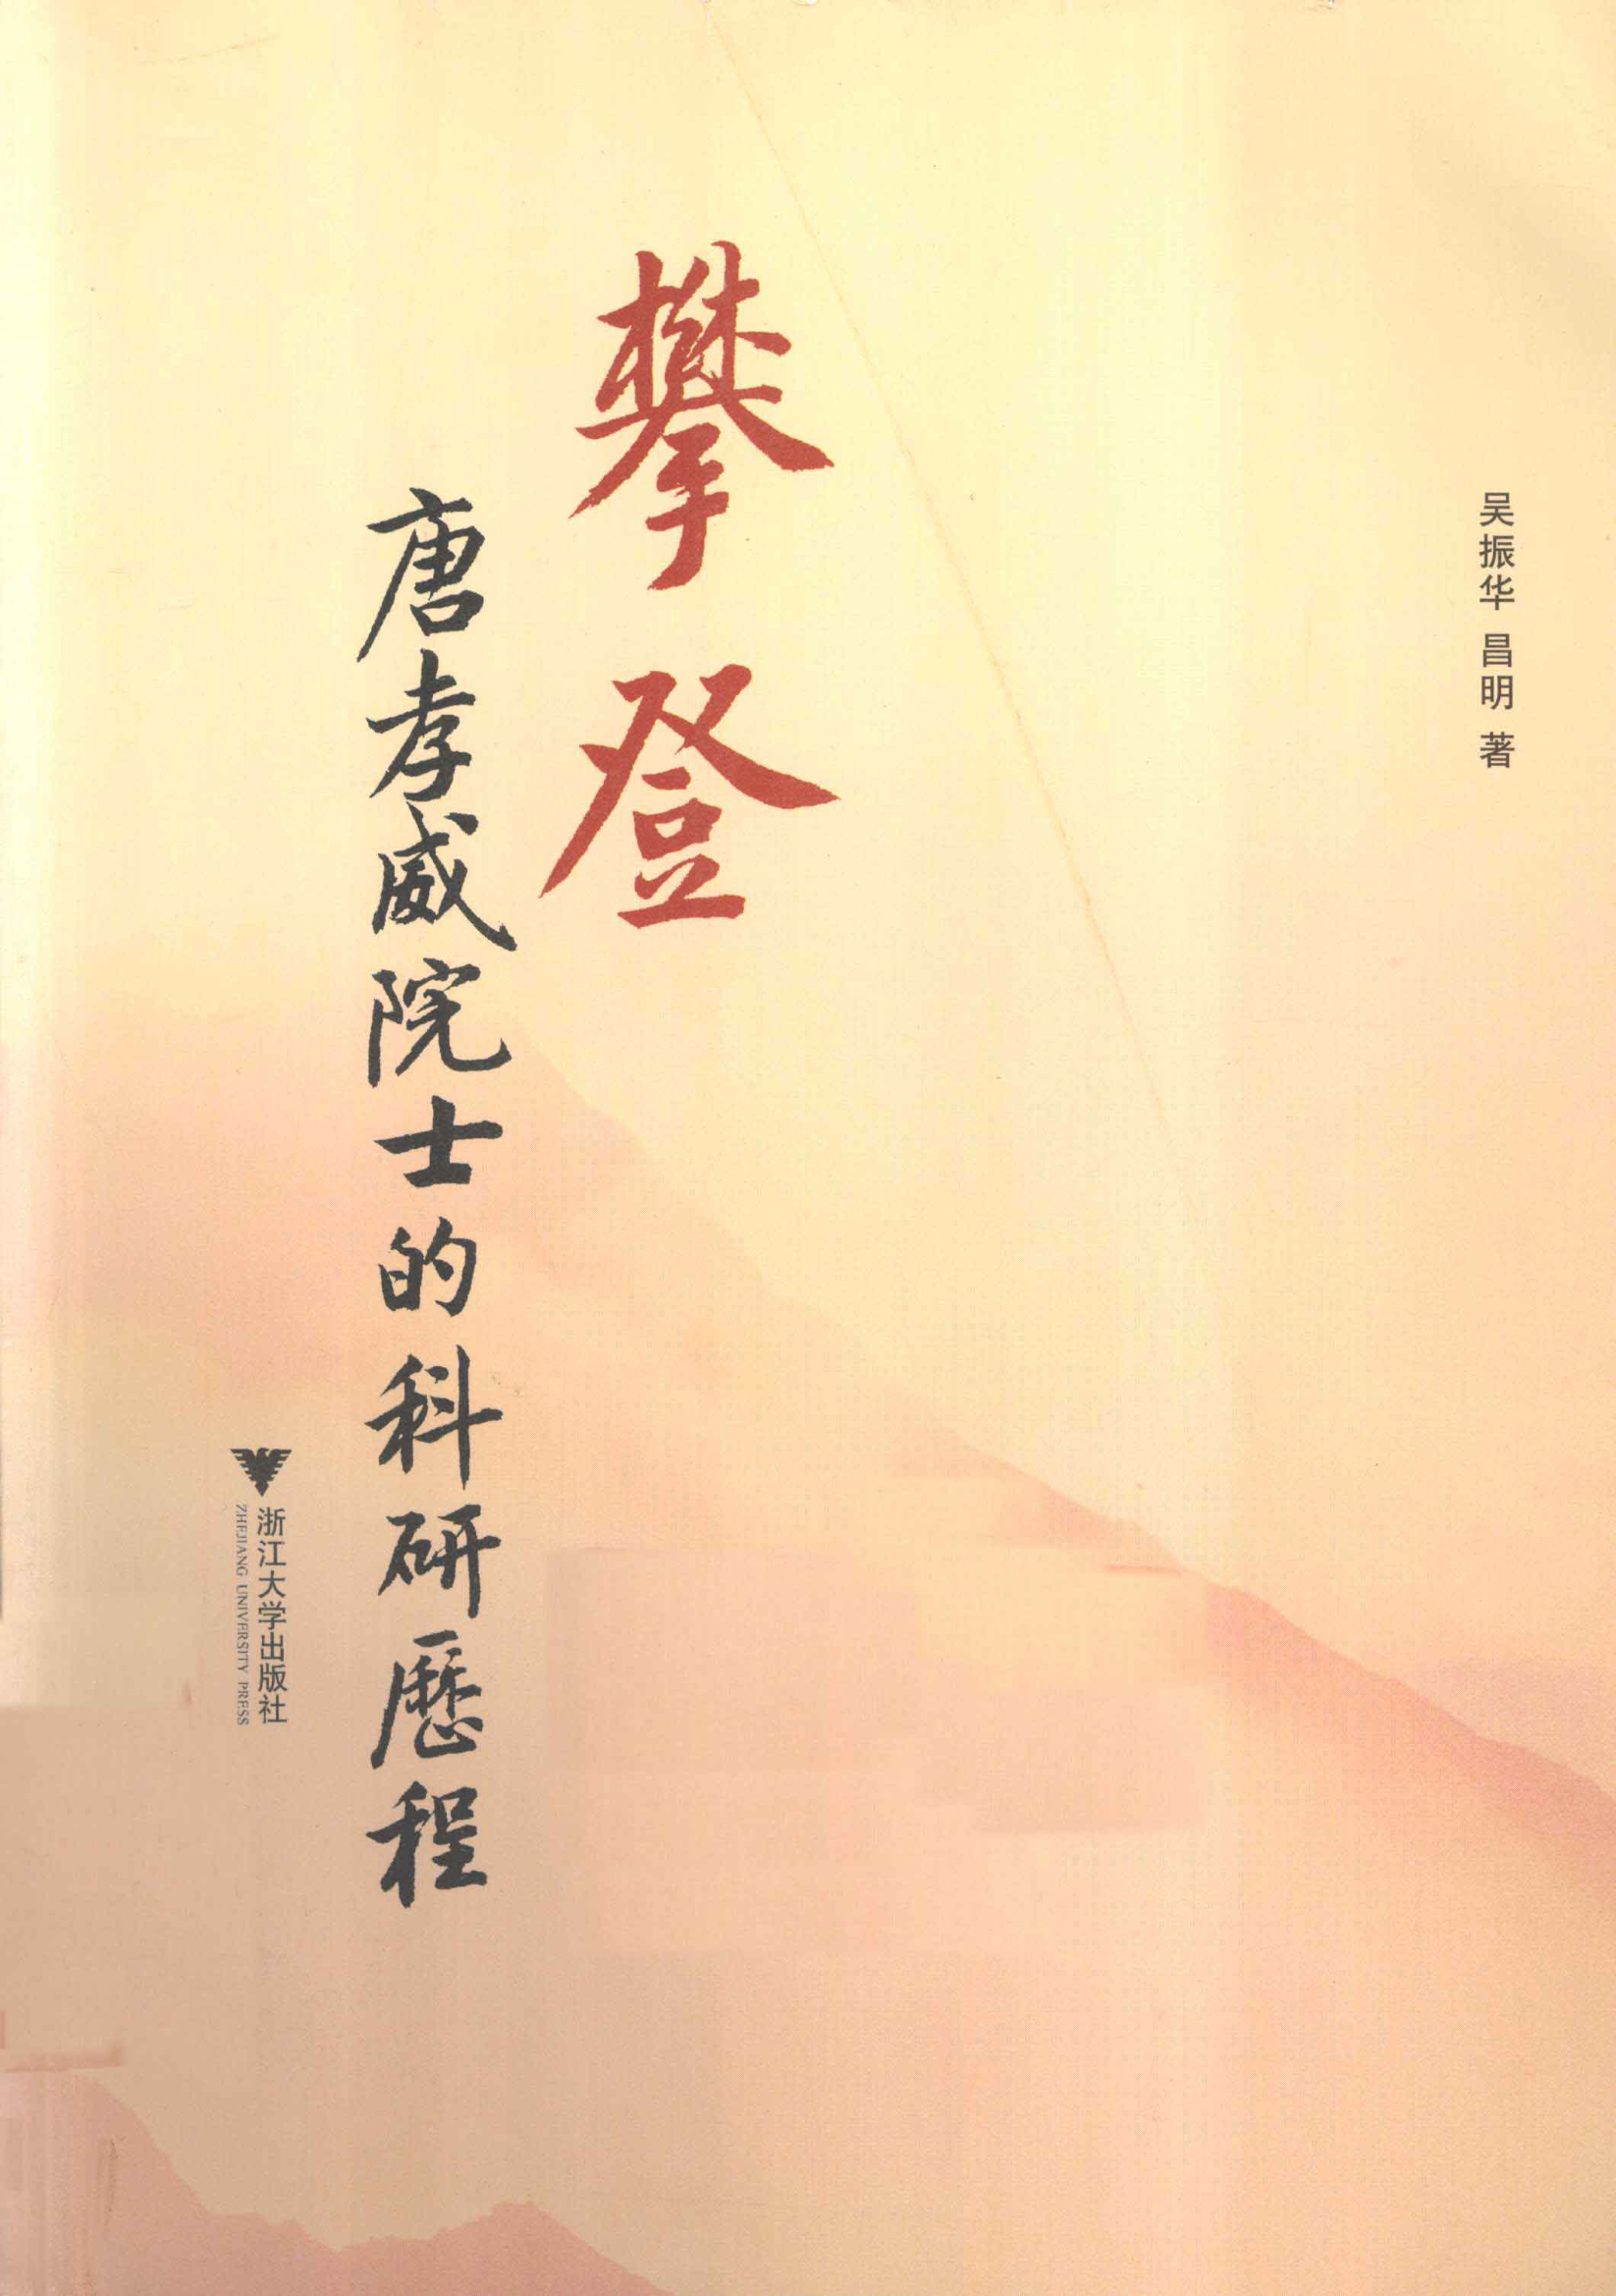 吴振华 昌明 著
攀登
唐孝威院士的科研歷程
浙江大学出版社
ZHEJIANG UNIVERSITY PRESS